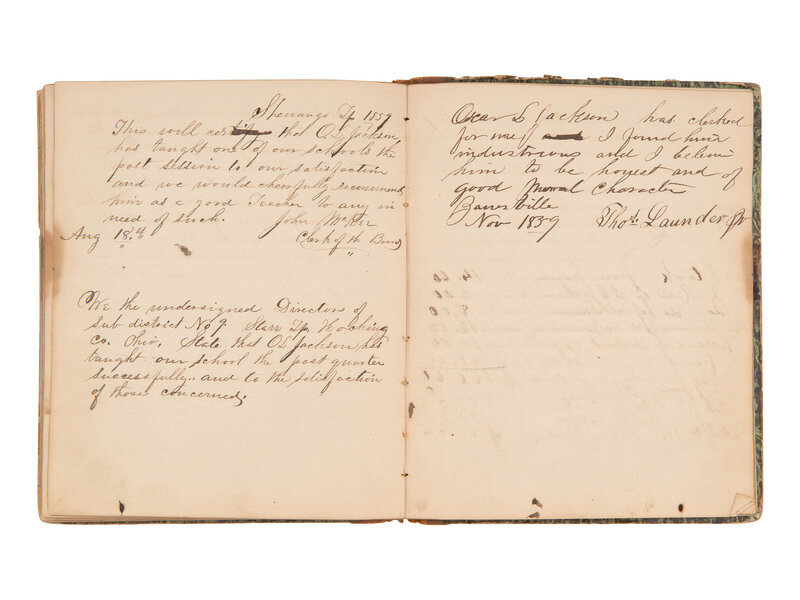 Shenango Tp 1859
This will certify that O L Jackson
has taught one of our schools the
past session to our satisfaction
and we would cheerfully recommend
him as a good Teacher to any in
need of such. John McKee
Aug 18th Clerk of the Board
We the undersigned Directors of
Sub district No 9. Starr Tp. Hocking
Co. Ohio. State that OL Jackson has
taught our school the past quarter
successfully and to the satisfaction
of those concerned.
Oscar L Jackson has clerked
for me I found him
industrious and I believe
him to be honest and of
good Moral Character
Nov 1859 Thos. Launder Jr